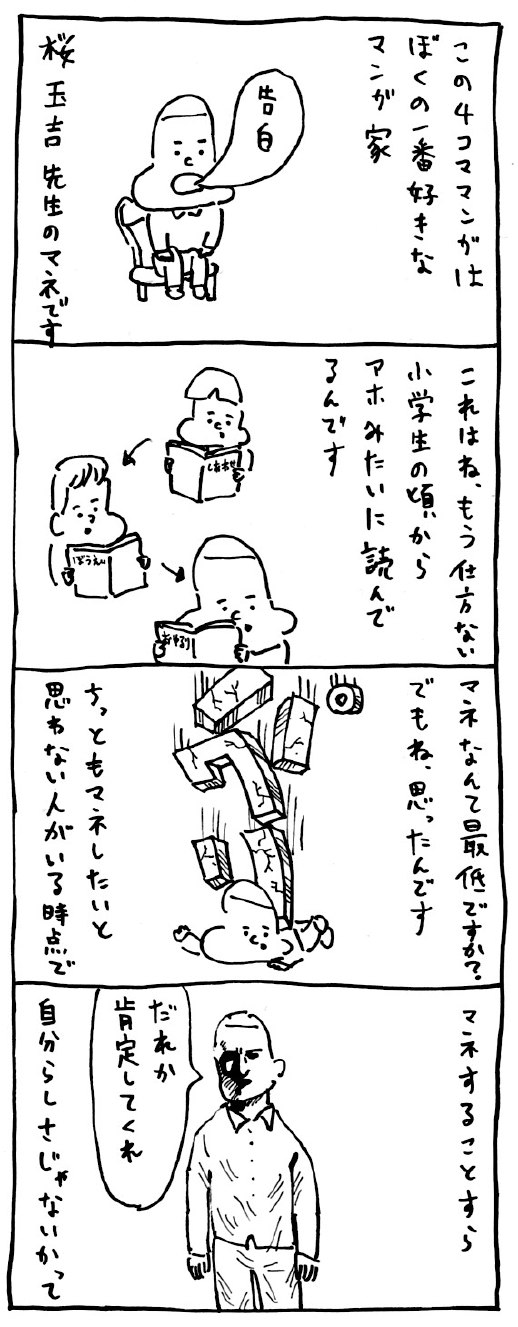 この4コママンガは
ぼくの一番好きな
マンガ家
告白
桜 玉吉 先生のマネです
これはね、もう仕方ない
小学生の頃から
アホみたいに読んで
るんです
しあわせ
ぼうえい
おやゆり
マネなんて最低ですか?
でもね、思ったんです
ちっともマネしたいと
思わない人がいる時点で
マネすることすら
だれか
肯定してくれ
自分らしさじゃないかって